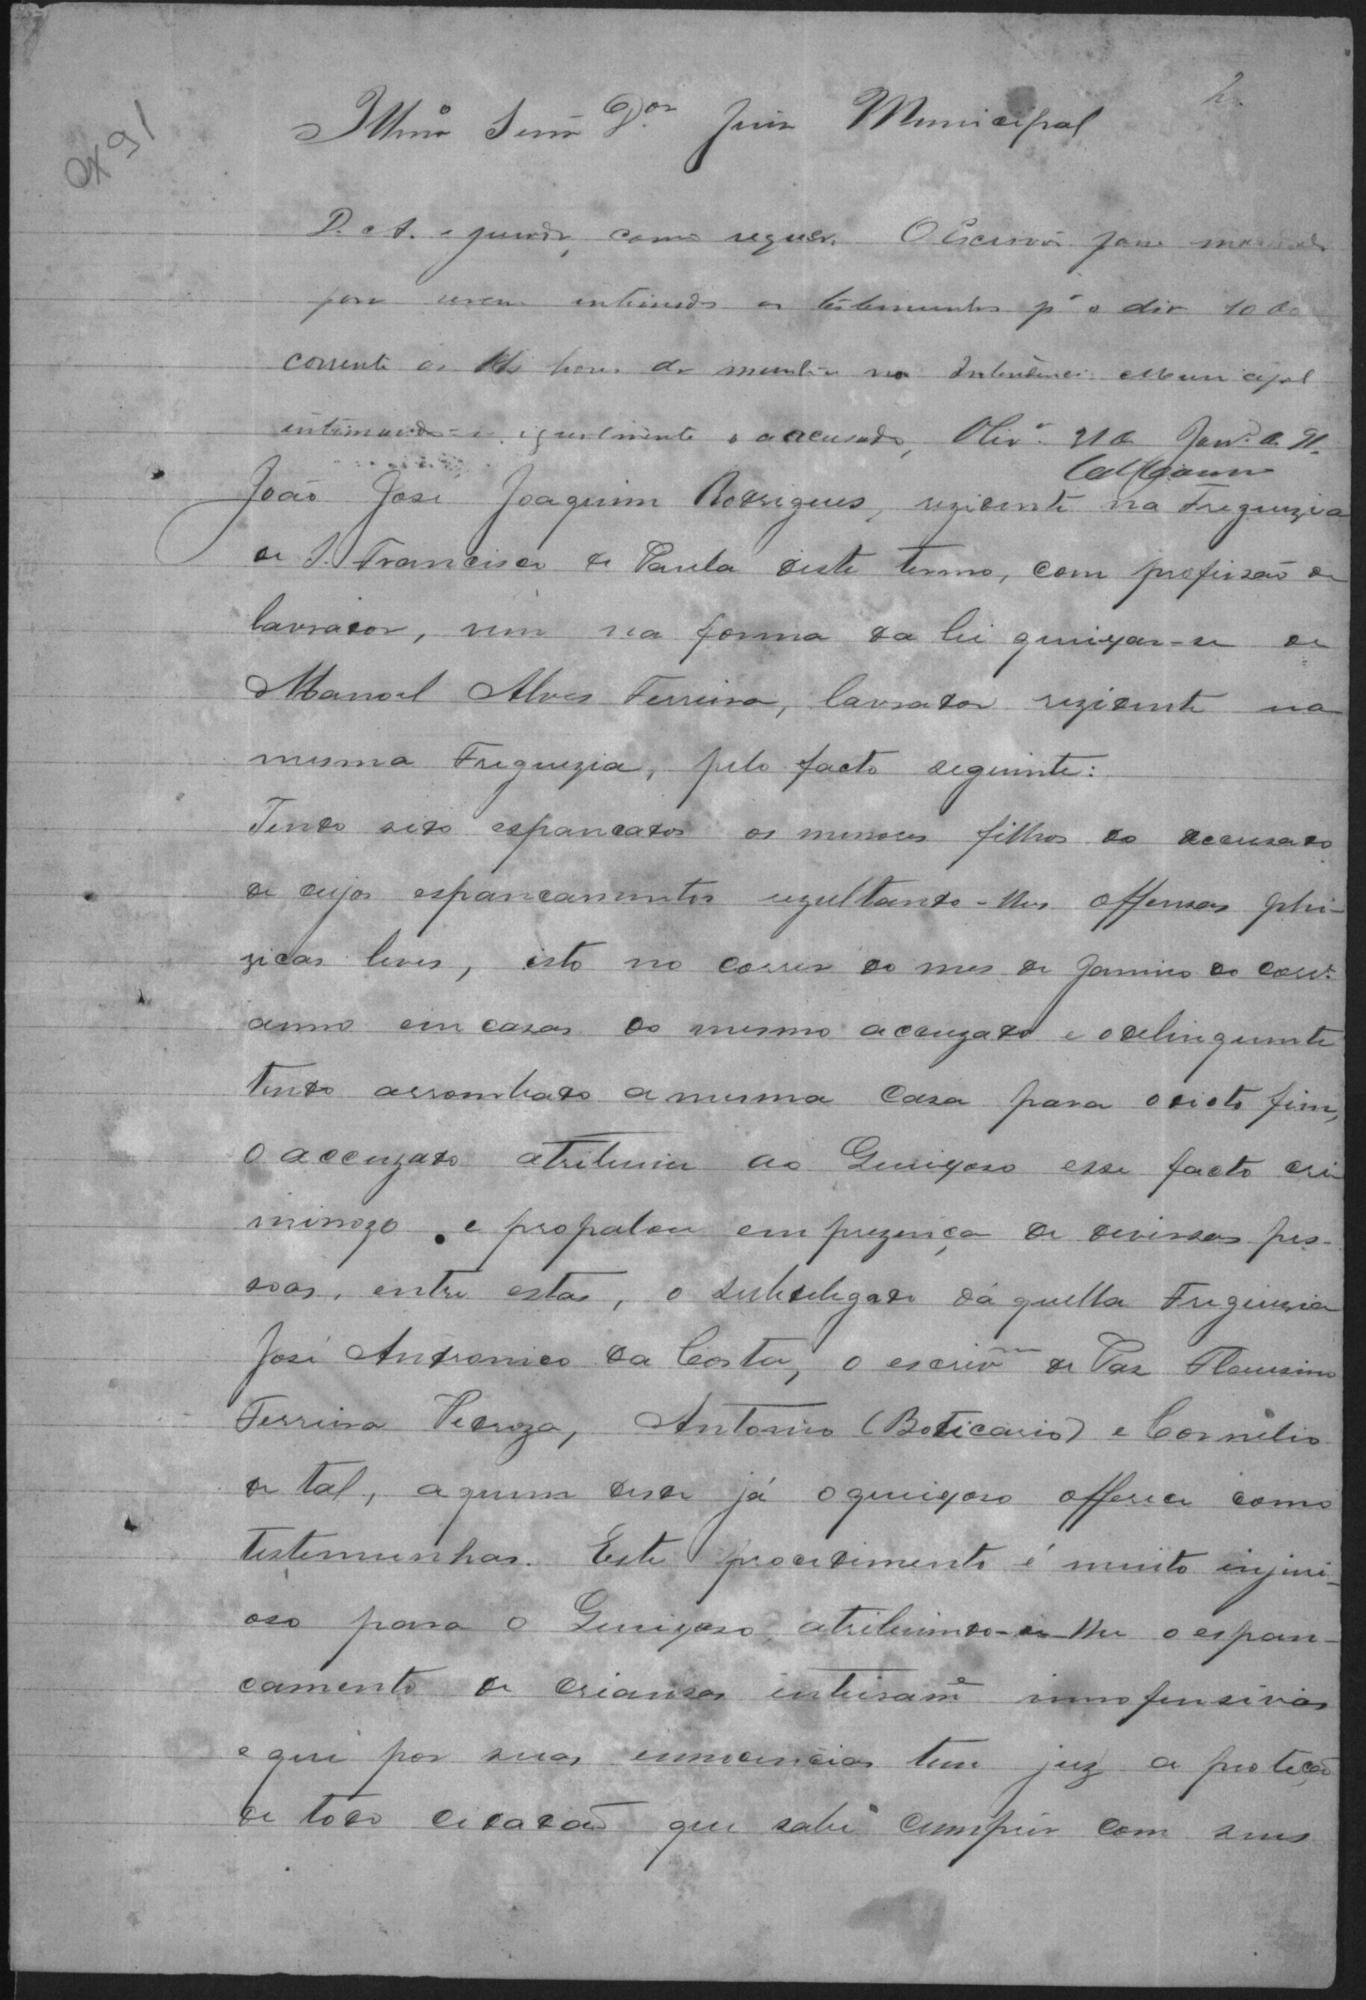 2.
Illmo Senr Dor Juiz Municipal
D. e A. e jurada, como requer. O Escrivão passe mandado
para serem intimados as testemunhas pa o dia 10 do
corrente as horas da manhã na Intendencia Municipal
intimando-se igualmente o accusado, Olivra 21 de Janro de 91.
João José Joaquim Rodrigues, rezidente na Freguezia
de S. Francisco de Paula deste termo, com profissão de
lavrador, vem na forma da lei queixar-se de
Manoel Alves Ferreira, lavrador rezidente na
mesma Freguezia, pelo facto seguinte:
Tendo sido espancados os menores filhos do accusado
de cujos espancamentos rezultando-lhes offensas phi-
zicas leves, isto no correr do mes de Janeiro do corre
anno em casas do mesmo accuzado e o delinquente
tendo arrombado a mesma casa para o dicto fim,
o accuzado atribuiu ao Queixoso esse facto cri
minozo e propalou em prezença de diversas pes-
soas, entre estas, o subdelegado dáquella Freguezia
José Andronico da Costa, o escrivm de Paz Flausino
Ferreira Pedroza, Antonio (Boticario) e Cornelio
de tal, a quem desde já o queixoso offerece como
testemunhas. Este procedimento é muito injuri-
oso para o Queixoso, atribuindo-se-lhe o espan-
camento de criansas inteirame innofensivas
e que por suas innocencias tem juz a proteção
de todo cidadão que sabe cumprir com seus